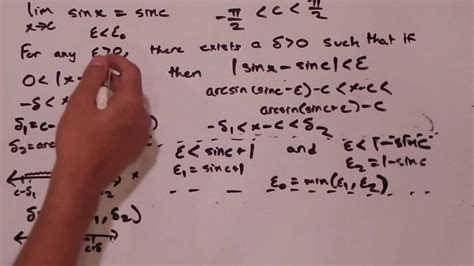 lim sinx = sinc   -π/2 < c < π/2
x→c
ε<ε₀
For any ε>0, there exists a δ>0 such that if
0<|x- then |sinx-sinc|<ε
-δ<x arcsin(sinc-ε)-c<x-c<
arcsin(sinc+ε)-c
δ₁=c- -δ₁<x-c<δ₂
δ₂=arc ε<sinc+1 and ε<1-sinc
ε₁=sinc+1 ε₂=1-sinc
c-δ₁ x ε₀=min(ε₁,ε₂)
δ ,δ₂)
c+δ